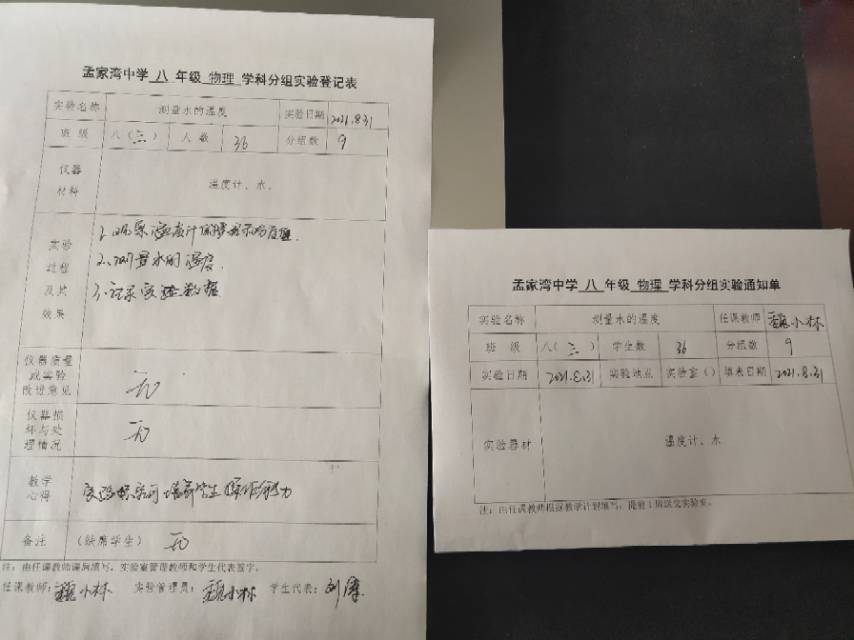 孟家湾中学 八 年级 物理 学科分组实验登记表
实验名称 测量水的温度 实验日期 2021.8.31
班 级 八(三) 人 数 36 分组数 9
仪器
材料
温度计、水、
实验
过程
及其
效果
2.测量水的温度.
3.记录实验数据
仪器质量
或实验
改进意见
无
仪器损
坏与处
理情况
无
教学
心得
培养学生操作能力
备注 (缺席学生) 无
注:由任课教师课后填写,实验室管理教师和学生代表签字。
任课教师: 小林 实验管理员: 小林 学生代表: 刘
孟家湾中学 八 年级 物理 学科分组实验通知单
实验名称 测量水的温度 任课教师 小林
班 级 八(三) 学生数 36 分组数 9
实验日期 2021.8.31 实验地点 实验室() 填表日期 2021.8.31
实验器材 温度计、水
注:由任课教师根据教学计划填写,提前1周送交实验室。